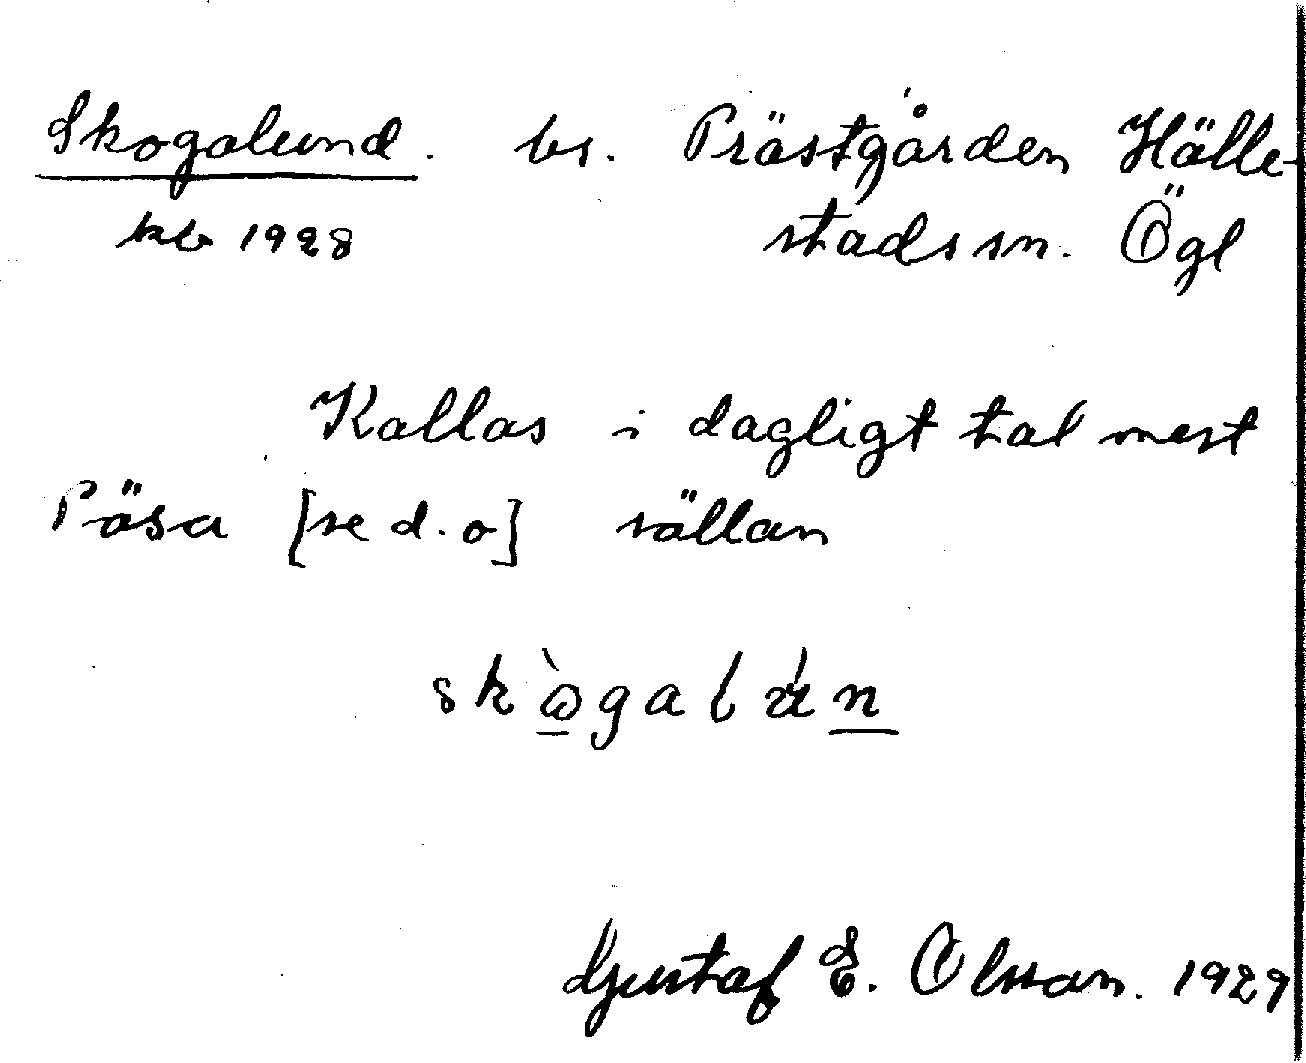 Skogalund. bs. Prästgården Hälle-
kb 1928 stads sn. Ögl
Kallas i dagligt tal mest
Päsa [se d. o] sällan
skògalún
Gustaf E. Olsson. 1929